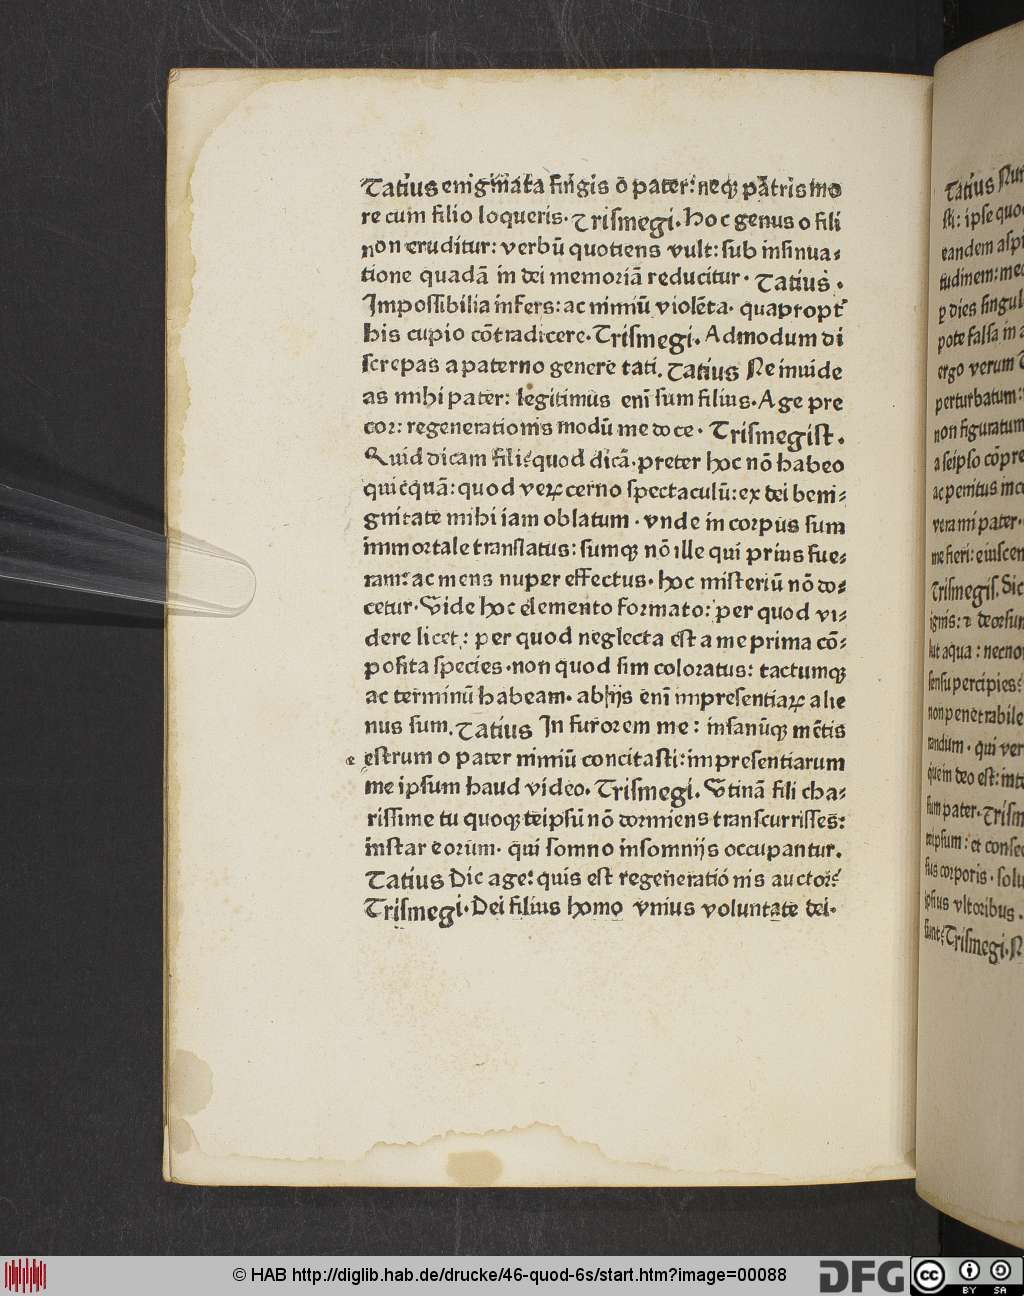 Tatius enigmata fingis ō pater: neqꝫ patris mo
re cum filio loqueris. Trismegi. Hoc genus o fili
non eruditur: verbū quotiens vult: sub insinua-
tione quadā in dei memoriā reducitur. Tatius.
Impossibilia infers: ac nimiū violēta. quapropt̄
his cupio cōtradicere. Trismegi. Admodum di
screpas a paterno genere tati. Tatius Ne inuide
as mihi pater: legitimus enī sum filius. Age pre
cor: regenerationis modū me doce. Trismegist.
Quid dicam fili? quod dicā. preter hoc nō habeo
quicquā: quod veꝝ cerno spectaculū: ex dei beni-
gnitate mihi iam oblatum. vnde in corpus sum
immortale translatus: sumqꝫ nō ille qui prius fue-
ram: ac mens nuper effectus. hoc misteriū nō do-
cetur. Vide hoc elemento formato: per quod vi-
dere licet: per quod neglecta est a me prima cō-
posita species. non quod sim coloratus: tactumqꝫ
ac terminū habeam. abijs enī impresentiaꝝ alie
nus sum. Tatius In furorem me: insanūqꝫ mētis
estrum o pater nimiū concitasti: impresentiarum
me ipsum haud video. Trismegi. Vtinā fili cha-
rissime tu quoqꝫ teipsū nō dormiens transcurrisses:
instar eorum. qui somno insomnijs occupantur.
Tatius Dic age: quis est regenerationis auctor?
Trismegi. Dei filius homo vnius voluntate dei.
Tatius
sti: ipse
eandem
tudinem:
p dies
pote falsa in
ergo verum
perturbatum:
non figuratum
a seipso
ac penitus
vera mi pater.
me fieri:
Trismegis. Sic
ignis:
aqua:
sensu percipies?
non penetrabile
qui
que in deo est:
pater. Tris
teipsum: et
corporis.
ipsius vltoribus.
sunt? Trismegi. N
© HAB http://diglib.hab.de/drucke/46-quod-6s/start.htm?image=00088
DFG
cc
BY SA